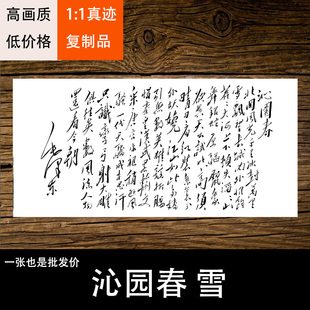 高画质
低价格
1:1真迹
复制品
沁园春
北国风光千里冰封万里
雪飘望长城内外惟馀
莽莽大河上下顿失滔滔山
舞银蛇原驰腊象
欲与天公试比高须
晴日看红装素裹分
外妖娆江山如此多娇
引无数英雄竞折腰
惜秦皇汉武略输文
采唐宗宋祖稍逊风
骚一代天骄成吉思汗
只识弯弓射大雕
俱往矣数风流人物
还看今朝
毛泽东
一张也是批发价
沁园春 雪